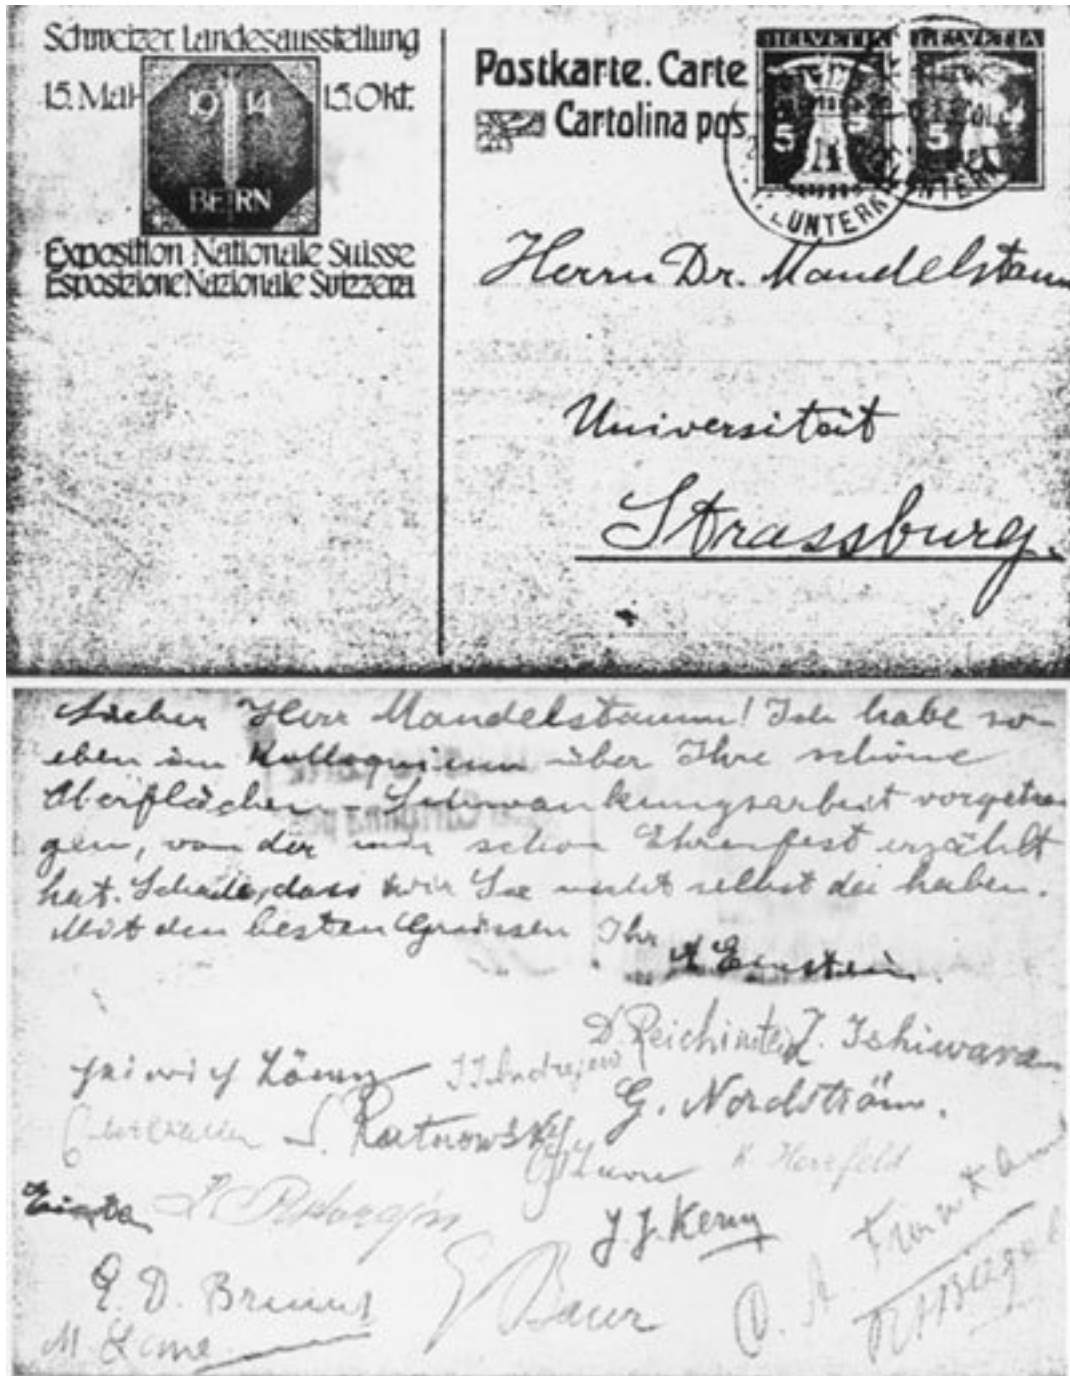 Schweizer Landesausstellung
15. Mai
1914
15. Okt.
BERN
Exposition Nationale Suisse
Esposizione Nazionale Svizzera
Postkarte. Carte
Cartolina pos
HELVETIA HELVETIA
5 5
UNTER
Herrn Dr. Mandelstam
Universität
Strassburg.
Lieber Herr Mandelstamm! Ich habe so-
eben im Kolloquium über Ihre schöne
Oberflächen-Schwankungsarbeit vorgetra
gen, von der mir schon Ehrenfest erzählt
hat. Schade, dass wir Sie nicht selbst da haben.
Mit den besten Grüssen Ihr
A Einstein.
D. Reichinstein J. Ishiwara
J. J. Andrejew
G. Nordström.
S. Ratnowsky
K. Herzfeld
J. J. Kern
E. Bauer
M. Laue